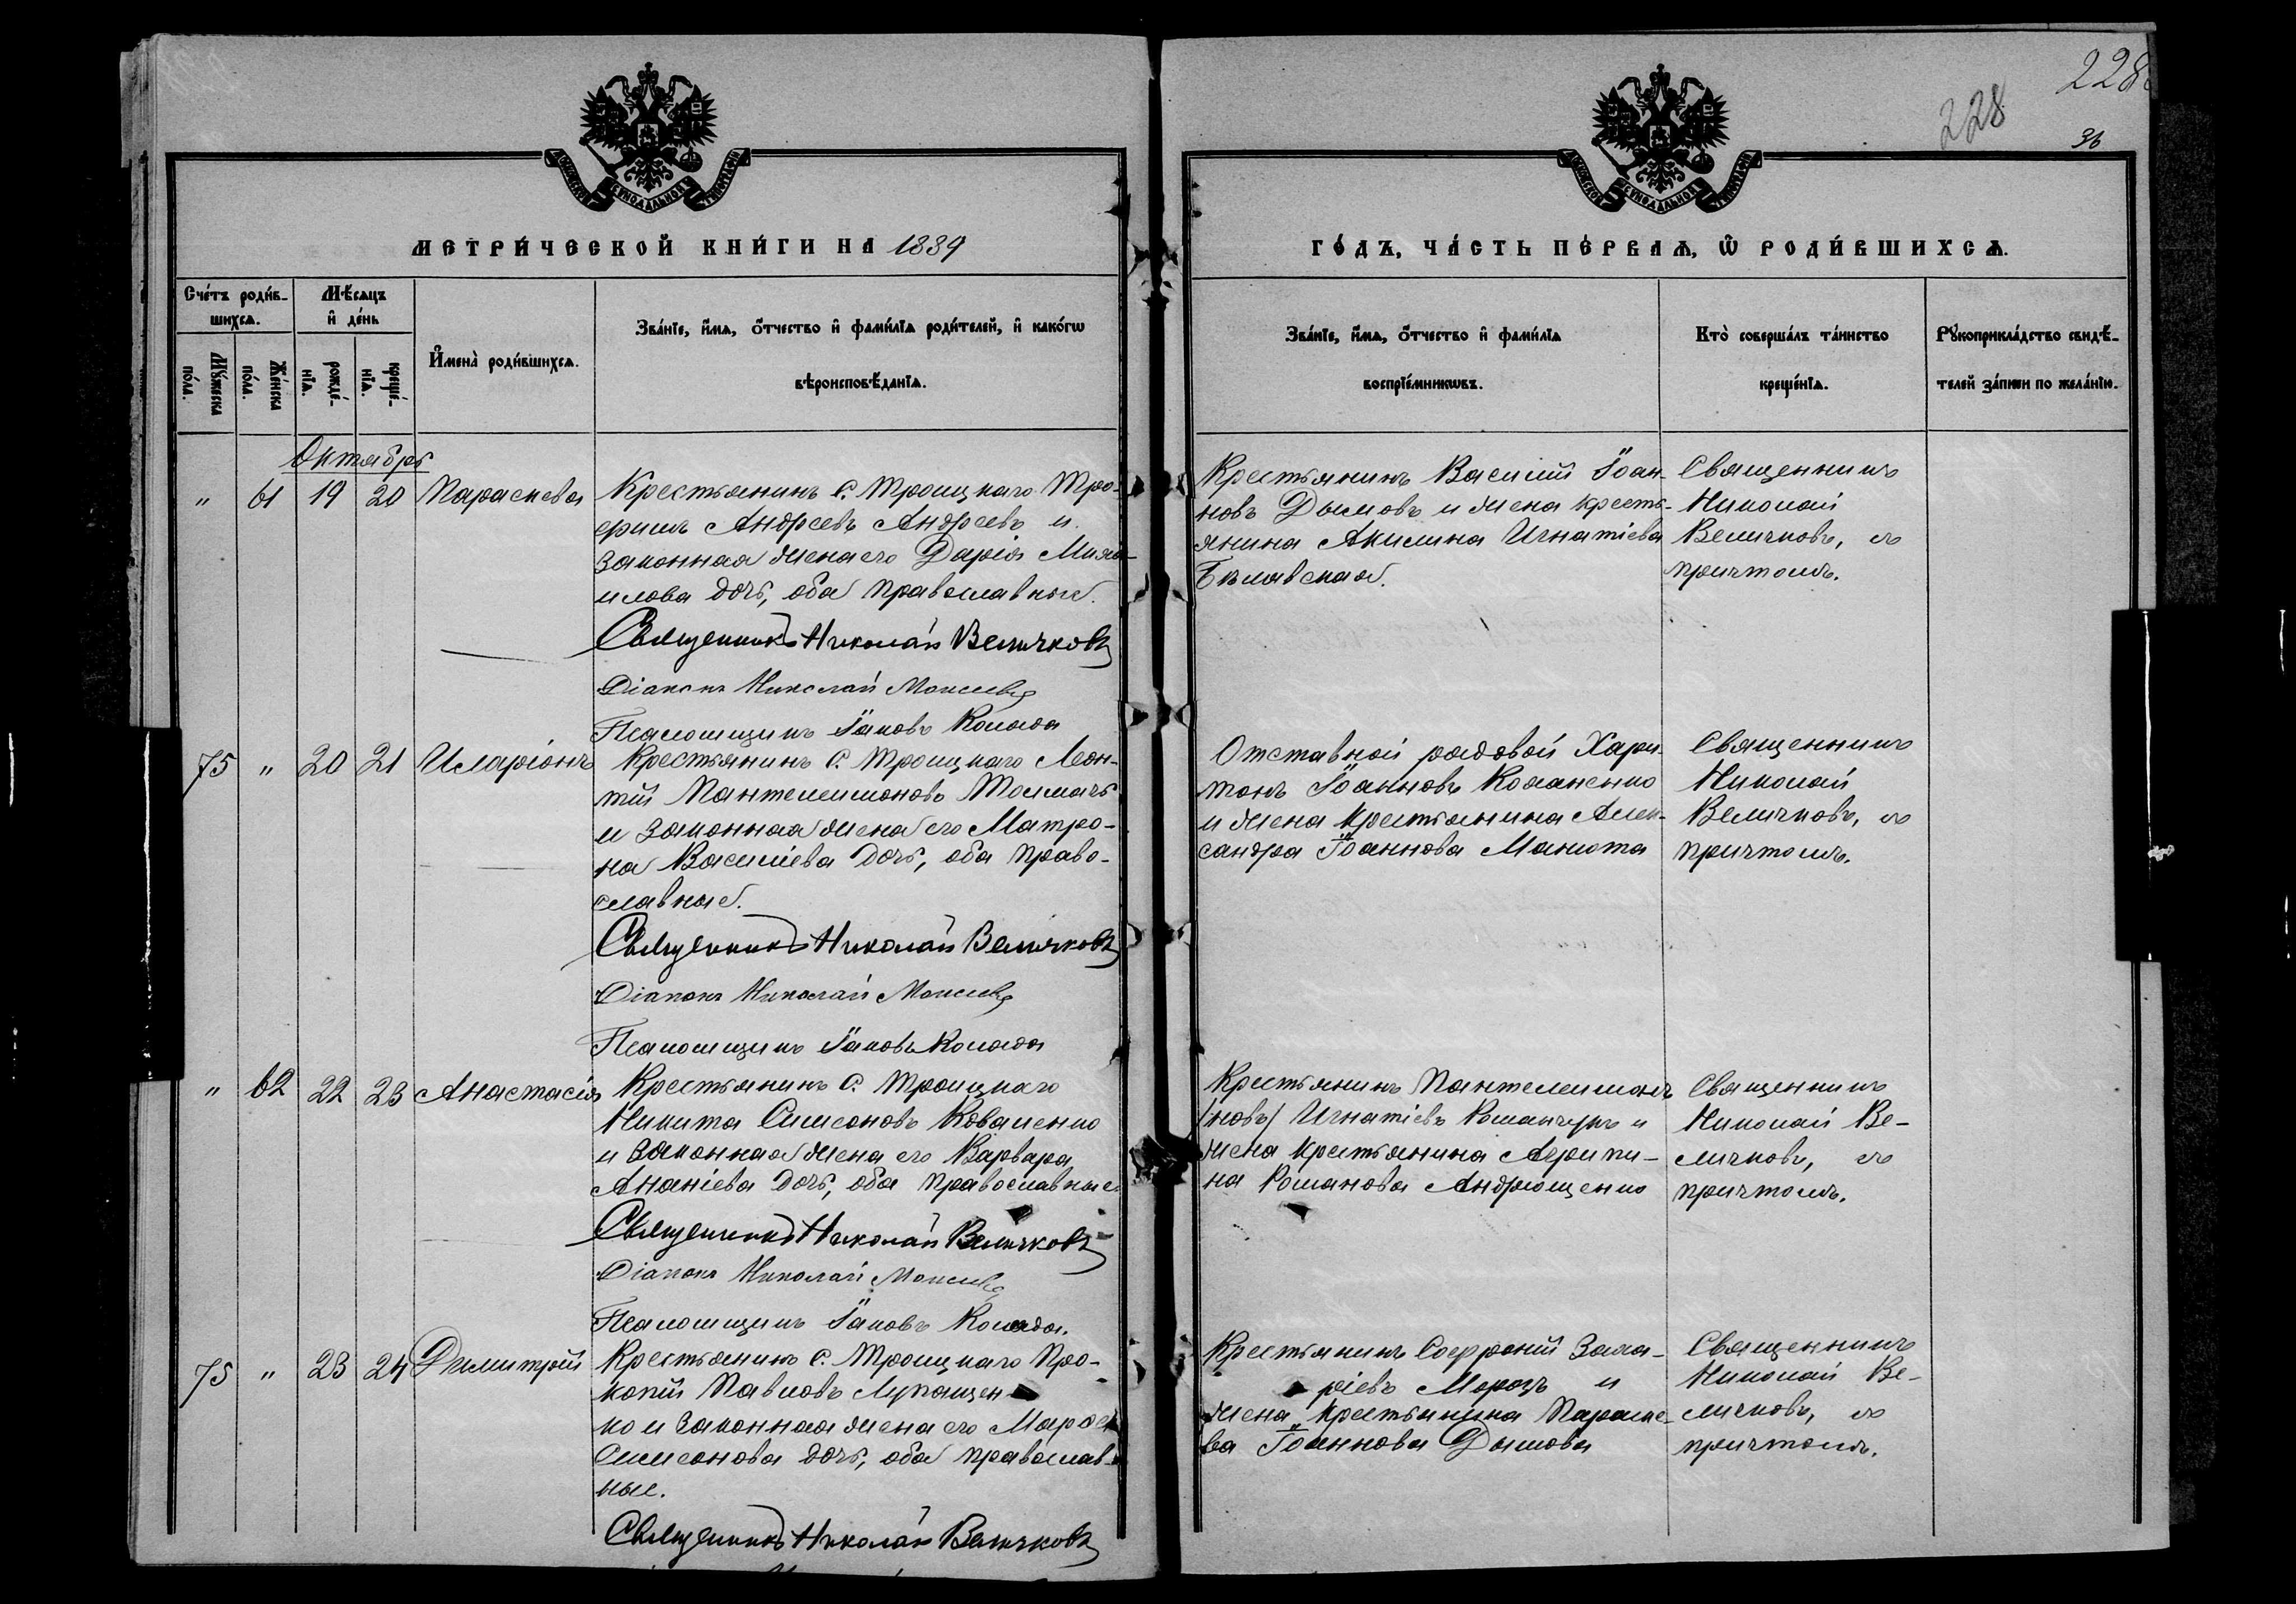 228
228
36
МЕТРИ́ЧЕСКОЙ КНИ́ГИ НА 1889
ГО́ДЪ, ЧА́СТЬ ПЕ́РВАѦ, Ѿ РОДИ́ВШИХСѦ.
Сче́тъ роди́в-
шихсѧ.
Мꙋ́жеска по́ла.
Же́нска по́ла.
Мѣ́сѧцъ
и҆ де́нь
рожде́-
нїѧ.
креще́-
нїѧ.
И҆мена̀ роди́вшихсѧ.
Зва́нїе, и҆́мѧ, ѻ҆́тчество и҆ фами́лїѧ роди́телей, и҆ како́гѡ
вѣроисповѣ́данїѧ.
Зва́нїе, и҆́мѧ, ѻ҆́тчество и҆ фами́лїѧ
воспрїе́мникѡвъ.
Кто̀ соверша́лъ та́инство
креще́нїѧ.
Рꙋкоприкла́дство свидѣ́-
телей за́писи по жела́нїю.
Октябрь
" 61 19 20 Параскева
Крестьянинъ с. Троицкаго Тро-
фимъ Андреевъ Андреевъ и
законная жена его Дарія Миха-
илова дочь, оба православные.
Священникъ Николай Величковъ
Діаконъ Николай Моисеевъ
Псаломщикъ Іаковъ Коляда
Крестьянинъ Василій Іоан-
новъ Дымовъ и жена кресть-
янина Акилина Игнатіева
Бѣлявская.
Священникъ
Николай
Величковъ, съ
причтомъ.
75 " 20 21 Иларіонъ
Крестьянинъ с. Троицкаго Леон-
тій Пантелеимоновъ Толмачъ
и законная жена его Матро-
на Василіева дочь, оба право-
славные.
Священникъ Николай Величковъ
Діаконъ Николай Моисеевъ
Псаломщикъ Іаковъ Коляда
Отставной рядовой Хари-
тонъ Іоанновъ
и жена крестьянина Алек-
сандра Іоаннова Манюта
Священникъ
Николай
Величковъ, съ
причтомъ.
" 62 22 23 Анастасія
Крестьянинъ с. Троицкаго
Никита Симеоновъ Коваленко
и законная жена его Варвара
Ананіева дочь, оба православные
Священникъ Николай Величковъ
Діаконъ Николай Моисеевъ
Псаломщикъ Іаковъ Коляда.
Крестьянинъ Пантелеимонъ
/новъ/ Игнатіевъ Романчукъ и
жена крестьянина Агрипи-
на Романова Андрющенко
Священникъ
Николай Ве-
личковъ, съ
причтомъ.
75 " 23 24 Димитрій
Крестьянинъ с. Троицкаго Про-
копій Павловъ Лупащен
ко и законная жена его
Симеонова дочь, оба православ-
ные.
Священникъ Николай Величковъ
Крестьянинъ Софроній Заха-
ріевъ Морозъ и
жена крестьянина Параске-
ва Іоаннова Дымова
Священникъ
Николай Ве-
личковъ, съ
причтомъ.